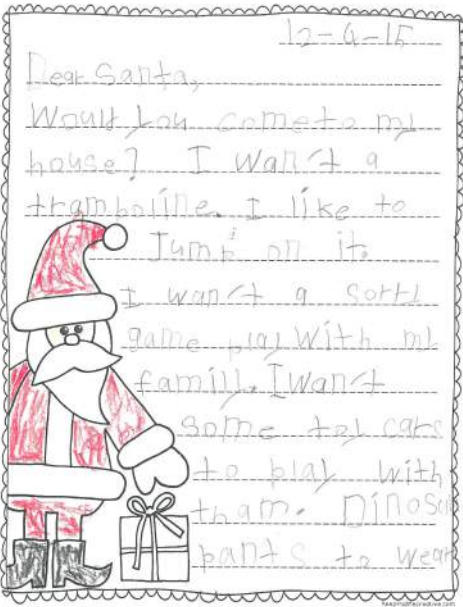 12-4-15
Dear Santa,
Would you come to my
house? I want a
tramboline. I like to
Jump on it.
I want a Sorry
game play With my
family. I want
some toy cars
to play with
tham. Dinosor
pants to wear